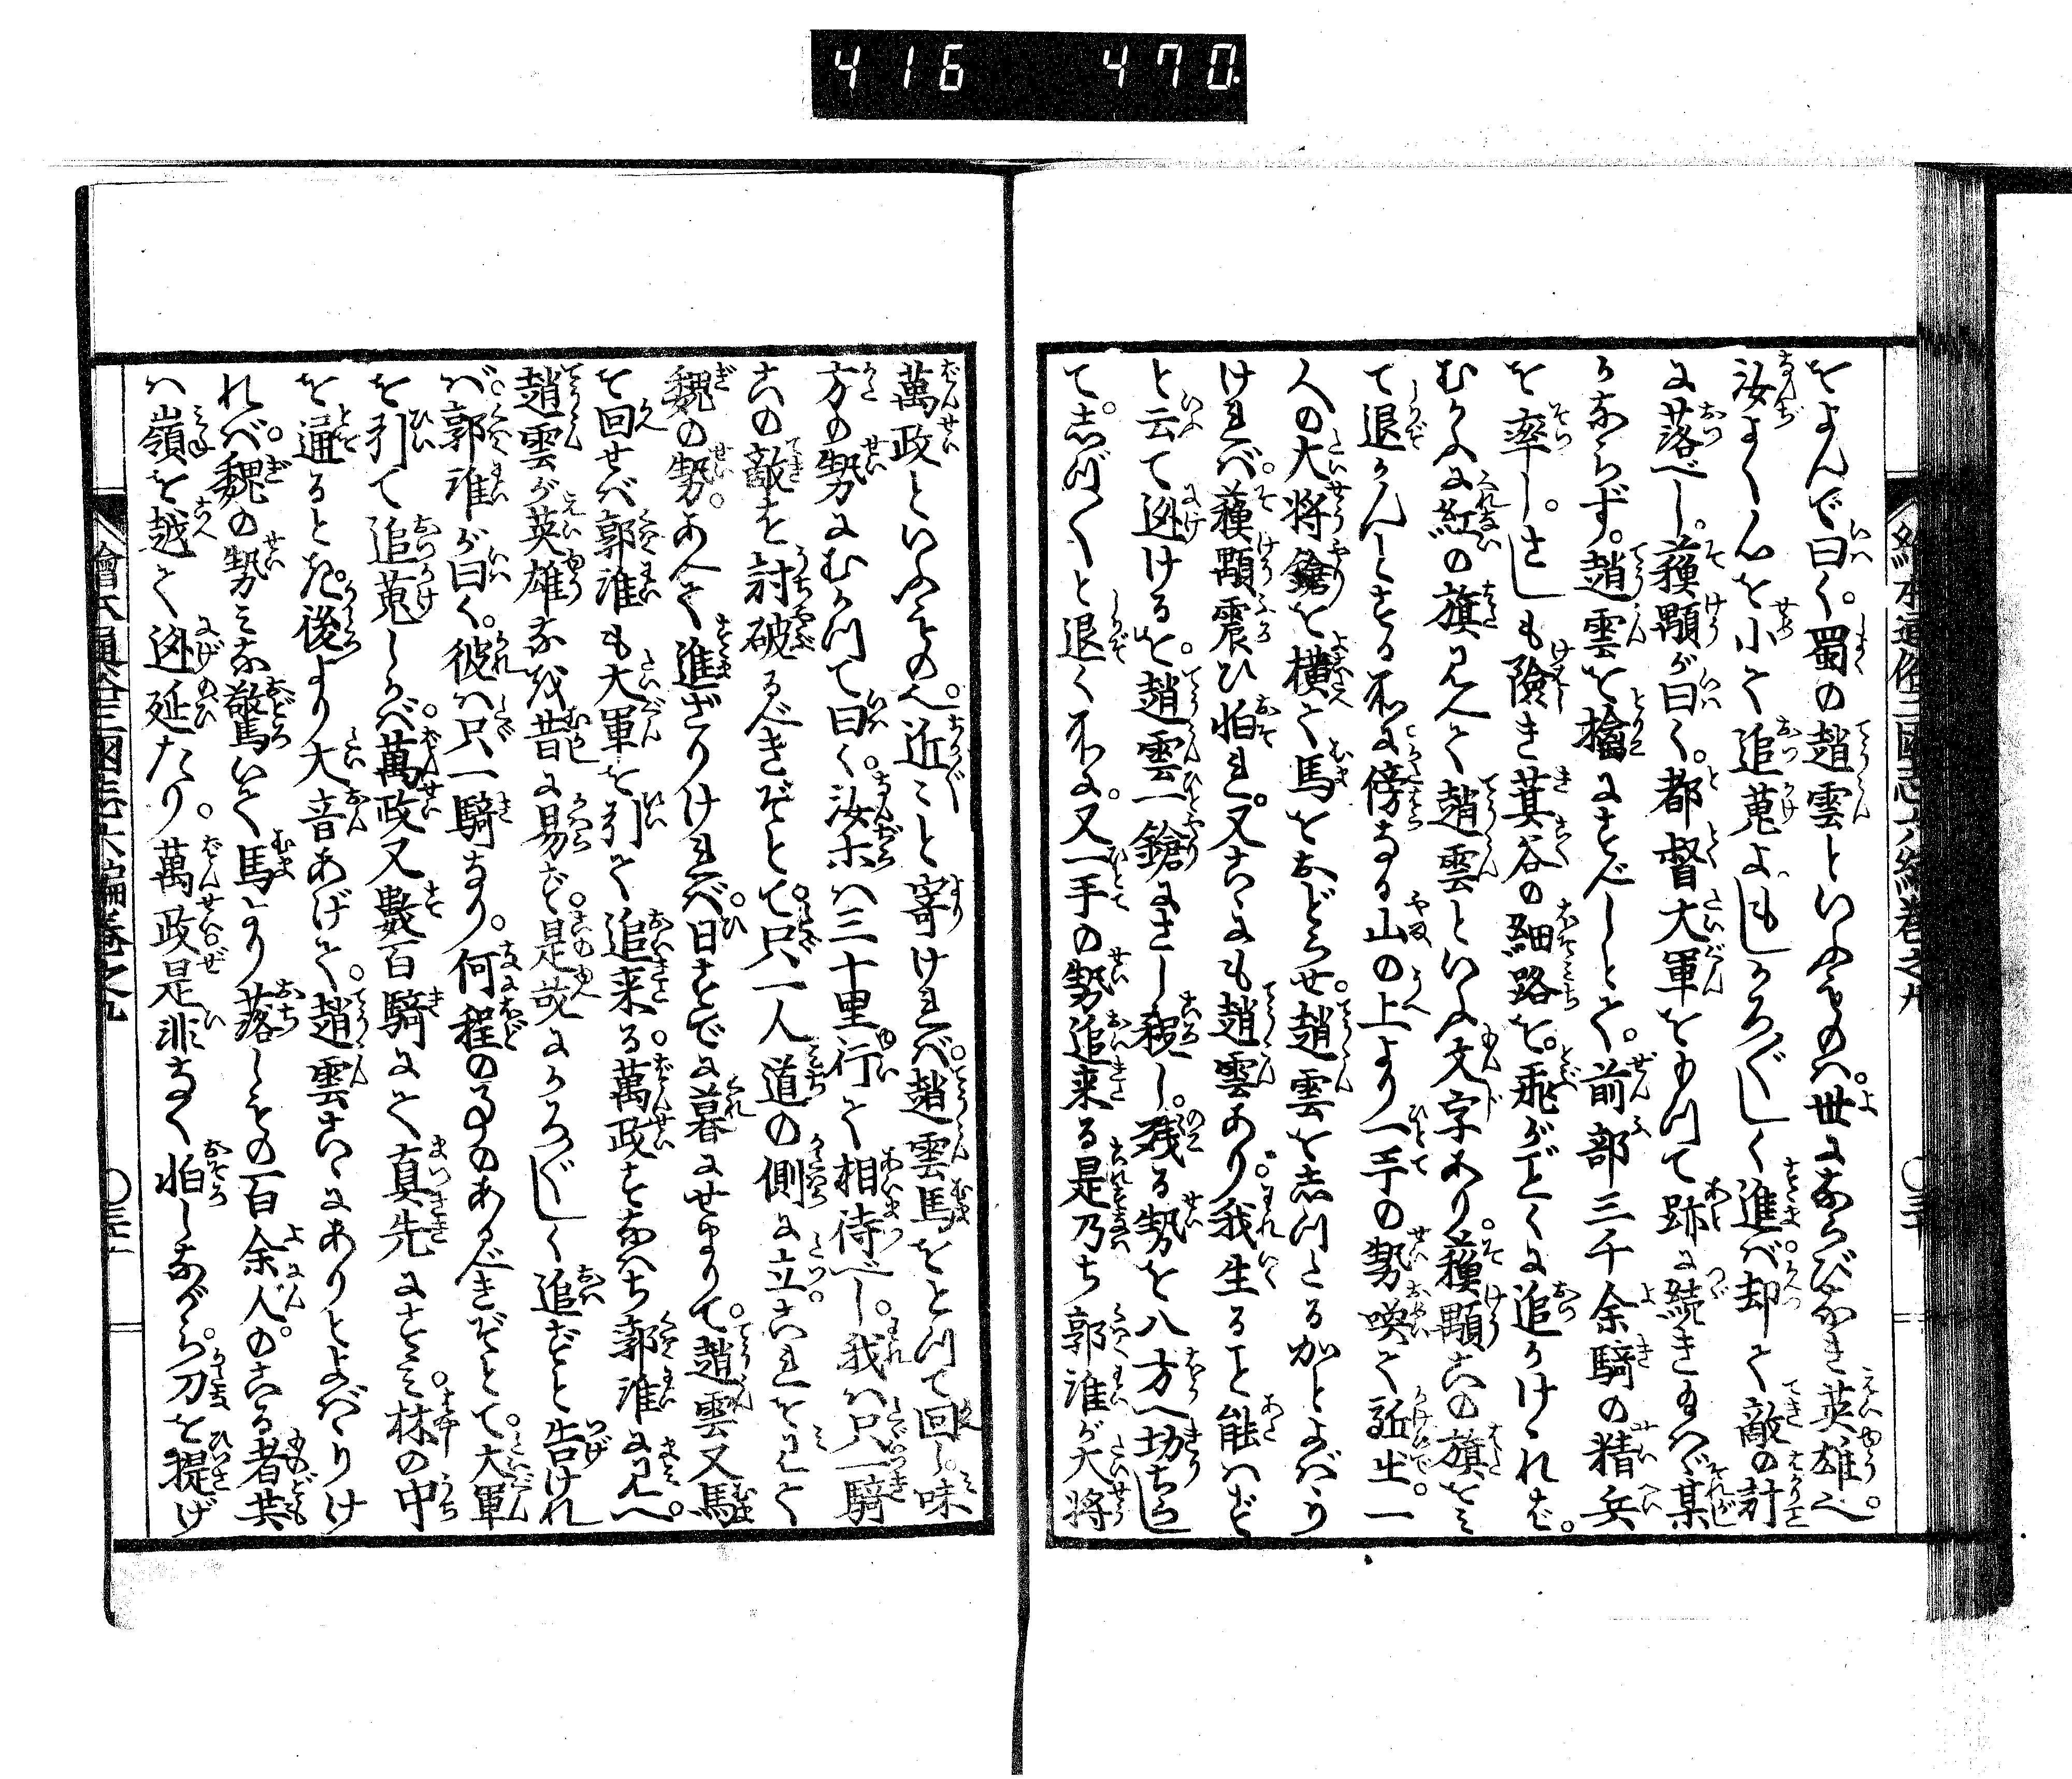 416 470
繪本通俗三國志六編巻之九
〇三十
をよんで曰く。蜀の趙雲といふものハ。世にならびなき英雄なり。
汝よく心を小て追蒐よ。もしかろ〴〵しく進バ却て敵の計
に落べし。蘓顒が曰く。都督大軍をもつて跡に続き玉ハヾ某
かならず。趙雲を擒にすべしとて。前部三千余騎の精兵
を率し。さしも険き箕谷の細路を。飛がごとくに追かけゝれば。
むかふに紅の旗見へて趙雲といふ文字あり。蘓顒この旗をミ
て退かんとする所に傍なる山の上より一手の勢喚て認出。一
人の大将鎗を横て馬をおどらせ。趙雲を志つたるかとよばゝり
けれバ。蘓顒震ひ怕れ。又こゝにも趙雲あり。我生ること能ハず
と云て迯けるを。趙雲一鎗にさし殺し。残る勢を八方へ切ちらし
て。志づ〳〵と退く所に。又一手の勢追来る是乃ち郭淮が大将
萬政といふもの也。近〴〵と寄けれバ。趙雲馬をとつて回し。味
方の勢にむかつて曰く。汝等ハ三十里行て相待べし。我ハ只一騎
この敵を討破るべきぞとて。只一人道の側に立。これを見て
魏の勢。あへて進ざりけれバ。日すでに暮にせまりて。趙雲又馬
を回せバ郭淮も大軍を引て追来る。萬政すなハち郭淮に見へ。
趙雲が英雄なほ昔に易ず。是故にかろ〴〵しく追ずと告けれ
バ。郭淮が曰く。彼ハ只一騎なり。何程の事のあるべきぞとて。大軍
を引て追蒐しかバ。萬政又數百騎にて真先にすゝミ。林の中
を通るとき。後より大音あげて。趙雲こゝにありとよバゝりけ
れべ。魏の勢ミな驚いて馬より落しもの百余人。のこる者共
ハ嶺を越て迯延たり。萬政是非なく怕しながら。刀を提げ
繪本通俗三國志六編巻之九
〇三十一